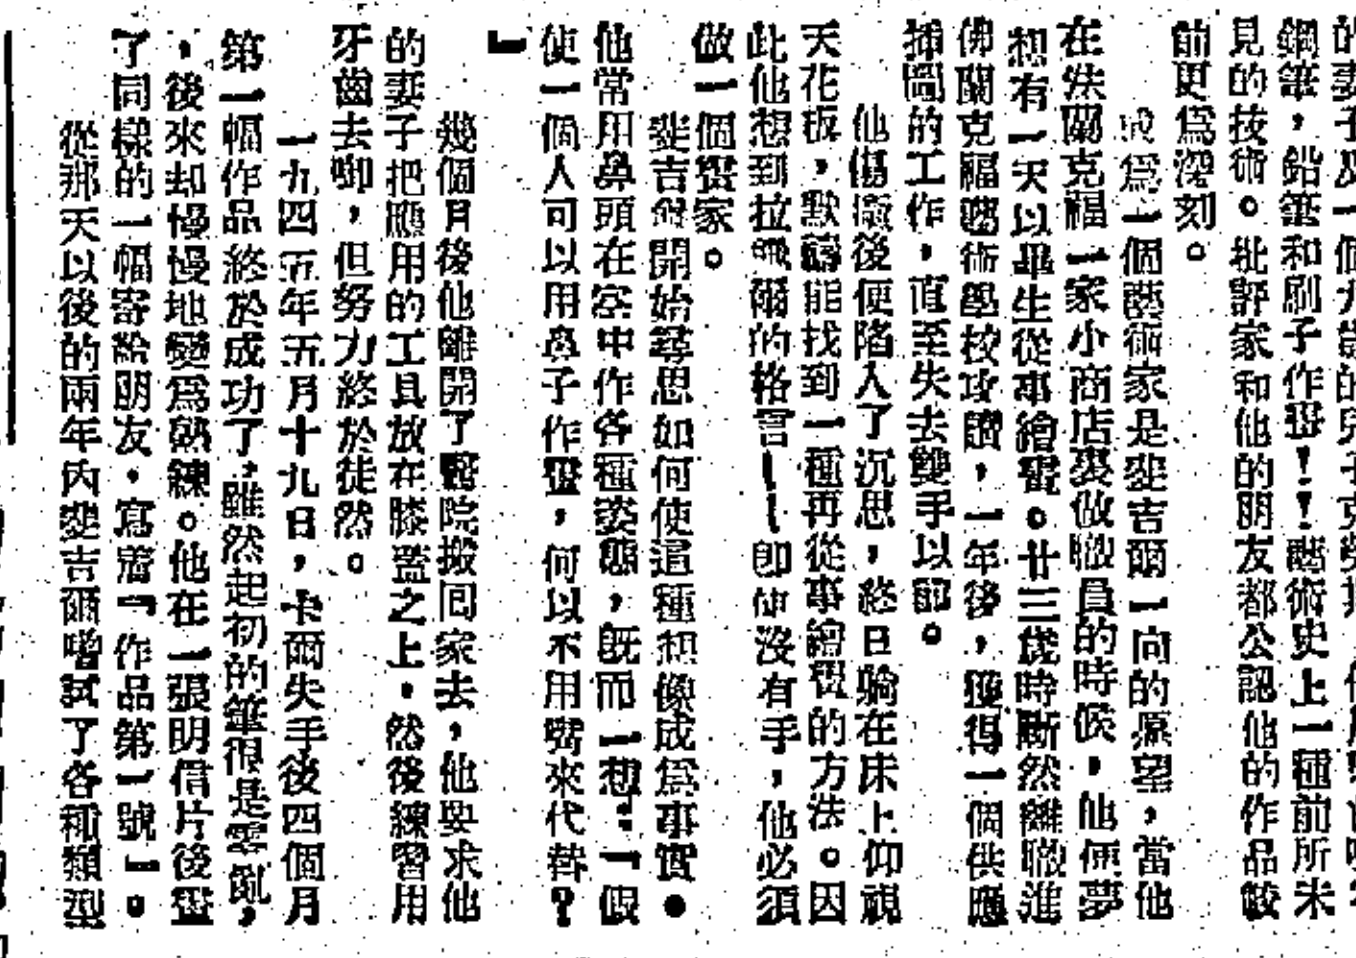 的妻子及一個九歲的兒子克勞斯
鋼筆，鉛筆和刷子作畫！！藝術史上一種前所未
見的技術。批評家和他的朋友都公認他的作品較
前更爲深刻。
成爲一個藝術家是斐吉爾一向的願望，當他
在法蘭克福一家小商店裏做職員的時候，他便夢
想有一天以畢生從事繪畫。廿三歲時斷然離職進
佛蘭克福藝術學校攻讀，一年後，獲得一個供應
插圖的工作，直至失去雙手以前。
他傷癒後便陷入了沉思，終日躺在床上仰視
天花板，默禱能找到一種再從事繪畫的方法。因
此他想到拉飛爾的格言——即使沒有手，他必須
做一個畫家。
斐吉爾開始尋思如何使這種想像成爲事實。
他常用鼻頭在空中作各種姿態，既而一想：「假
使一個人可以用鼻子作畫，何以不用嘴來代替？
」
幾個月後他離開了醫院搬回家去，他要求他
的妻子把應用的工具放在膝蓋之上。然後練習用
牙齒去啣，但努力終於徒然。
一九四五年五月十九日，卡爾失手後四個月
第一幅作品終於成功了，雖然起初的筆很是零亂，
，後來却慢慢地變爲熟練。他在一張明信片後畫
了同樣的一幅寄給朋友。寫着「作品第一號」。
從那天以後的兩年內斐吉爾嚐試了各種類型